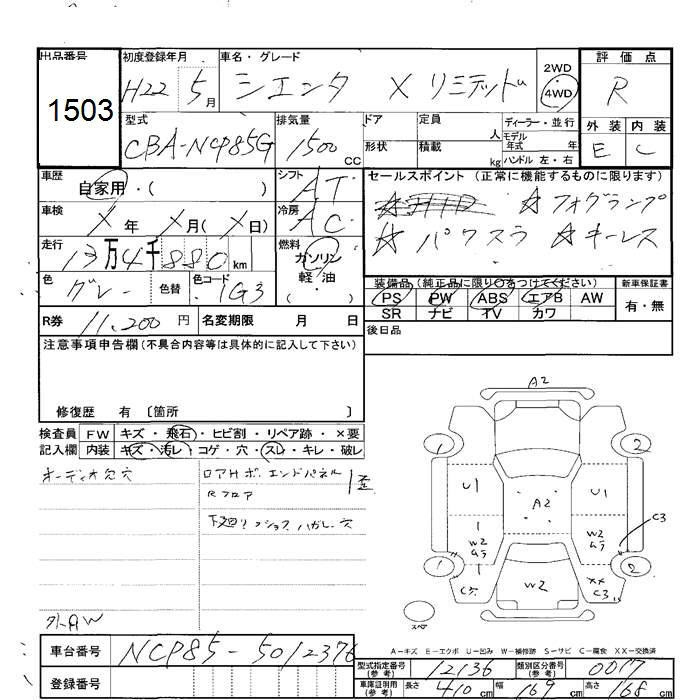 出品番号 初度登録年月 車名・グレード 評価点
1503 H22 5月 シエンタ X リミテッド 2WD 4WD R
型式 排気量 ドア 定員 人 ディーラー・並行 外装 内装
CBA-NCP85G 1500 CC 形状 積載 kg モデル年式 年 ハンドル 左・右 E C
車歴 自家用・( ) シフト AT セールスポイント (正常に機能するものに限ります)
車検 X年 X月(X日) 冷房 AC ☆フォグランプ
☆パワスラ ☆キーレス
走行 13万4千880km 燃料 ガソリン・軽・油
色 グレー 色替 色コード 1G3 装備品 (純正品に限り○をつけてください) 新車保証書
PS PW ABS エアB AW 有・無
SR ナビ TV カワ
R券 11,200円 名変期限 月 日 後日品
注意事項申告欄(不具合内容等は具体的に記入して下さい)
修復歴 有 〔箇所 〕
検査員 FW キズ・飛石・ヒビ割・リペア跡・×要
記入欄 内装 キズ・汚レ・コゲ・穴・スレ・キレ・破レ
オーディオ欠穴 ロアサポ、エンドパネル
Rフロア
下廻り サビ 穴
外AW
A2
1 2
U1 A2 U1
1 W2 1 W2 C3
1 2
1 W2 XX C3
スペア
A−キズ E−エクボ U−凹み W−補修跡 S−サビ C−腐食 XX−交換済
車台番号 NCP85-5012376
登録番号
型式指定番号(参考) 12136 類別区分番号(参考) 0017
車庫証明用(参考) 長さ 410cm 幅 169cm 高さ 168cm